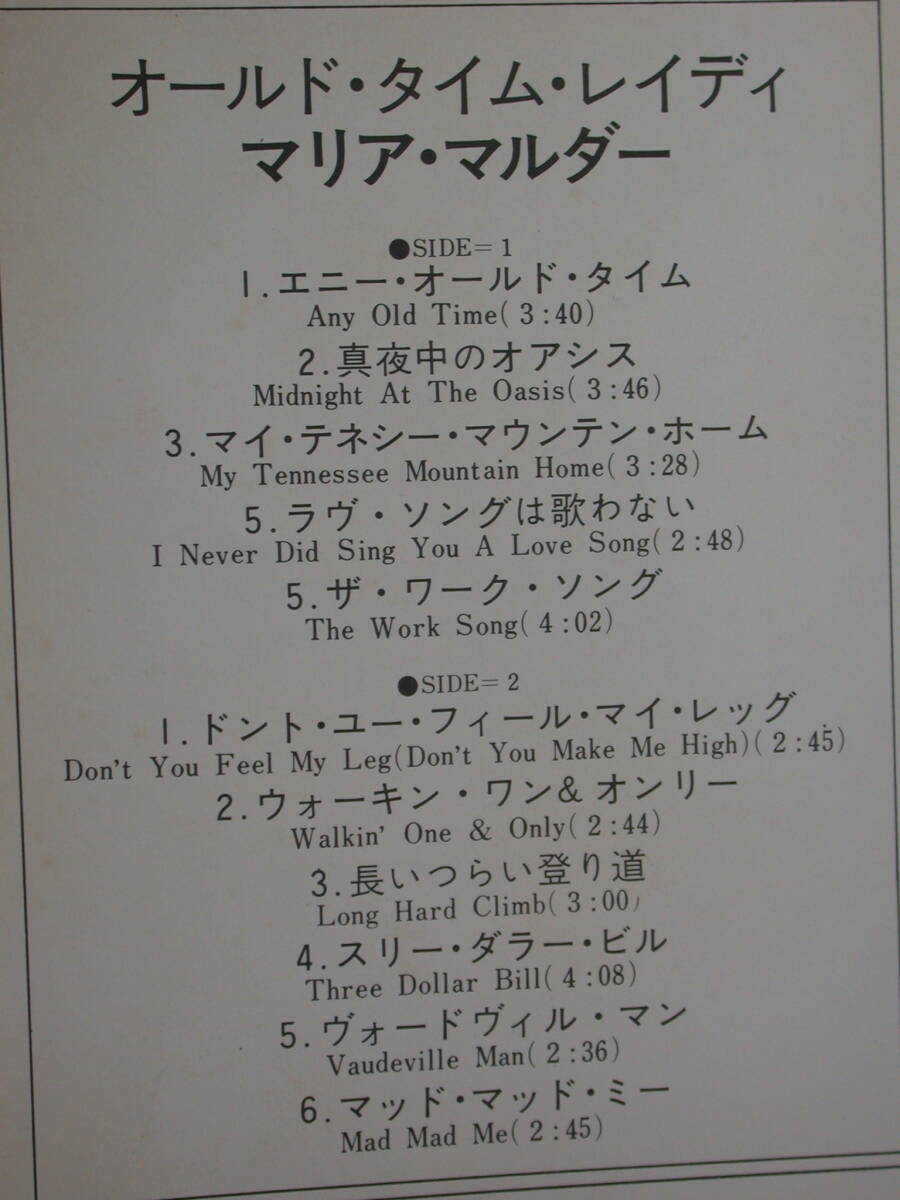 オールド・タイム・レイディ
マリア・マルダー
●SIDE=1
1.エニー・オールド・タイム
Any Old Time(3:40)
2.真夜中のオアシス
Midnight At The Oasis(3:46)
3.マイ・テネシー・マウンテン・ホーム
My Tennessee Mountain Home(3:28)
5.ラヴ・ソングは歌わない
I Never Did Sing You A Love Song(2:48)
5.ザ・ワーク・ソング
The Work Song(4:02)
●SIDE=2
1.ドント・ユー・フィール・マイ・レッグ
Don't You Feel My Leg(Don't You Make Me High)(2:45)
2.ウォーキン・ワン&オンリー
Walkin' One & Only(2:44)
3.長いつらい登り道
Long Hard Climb(3:00)
4.スリー・ダラー・ビル
Three Dollar Bill(4:08)
5.ヴォードヴィル・マン
Vaudeville Man(2:36)
6.マッド・マッド・ミー
Mad Mad Me(2:45)